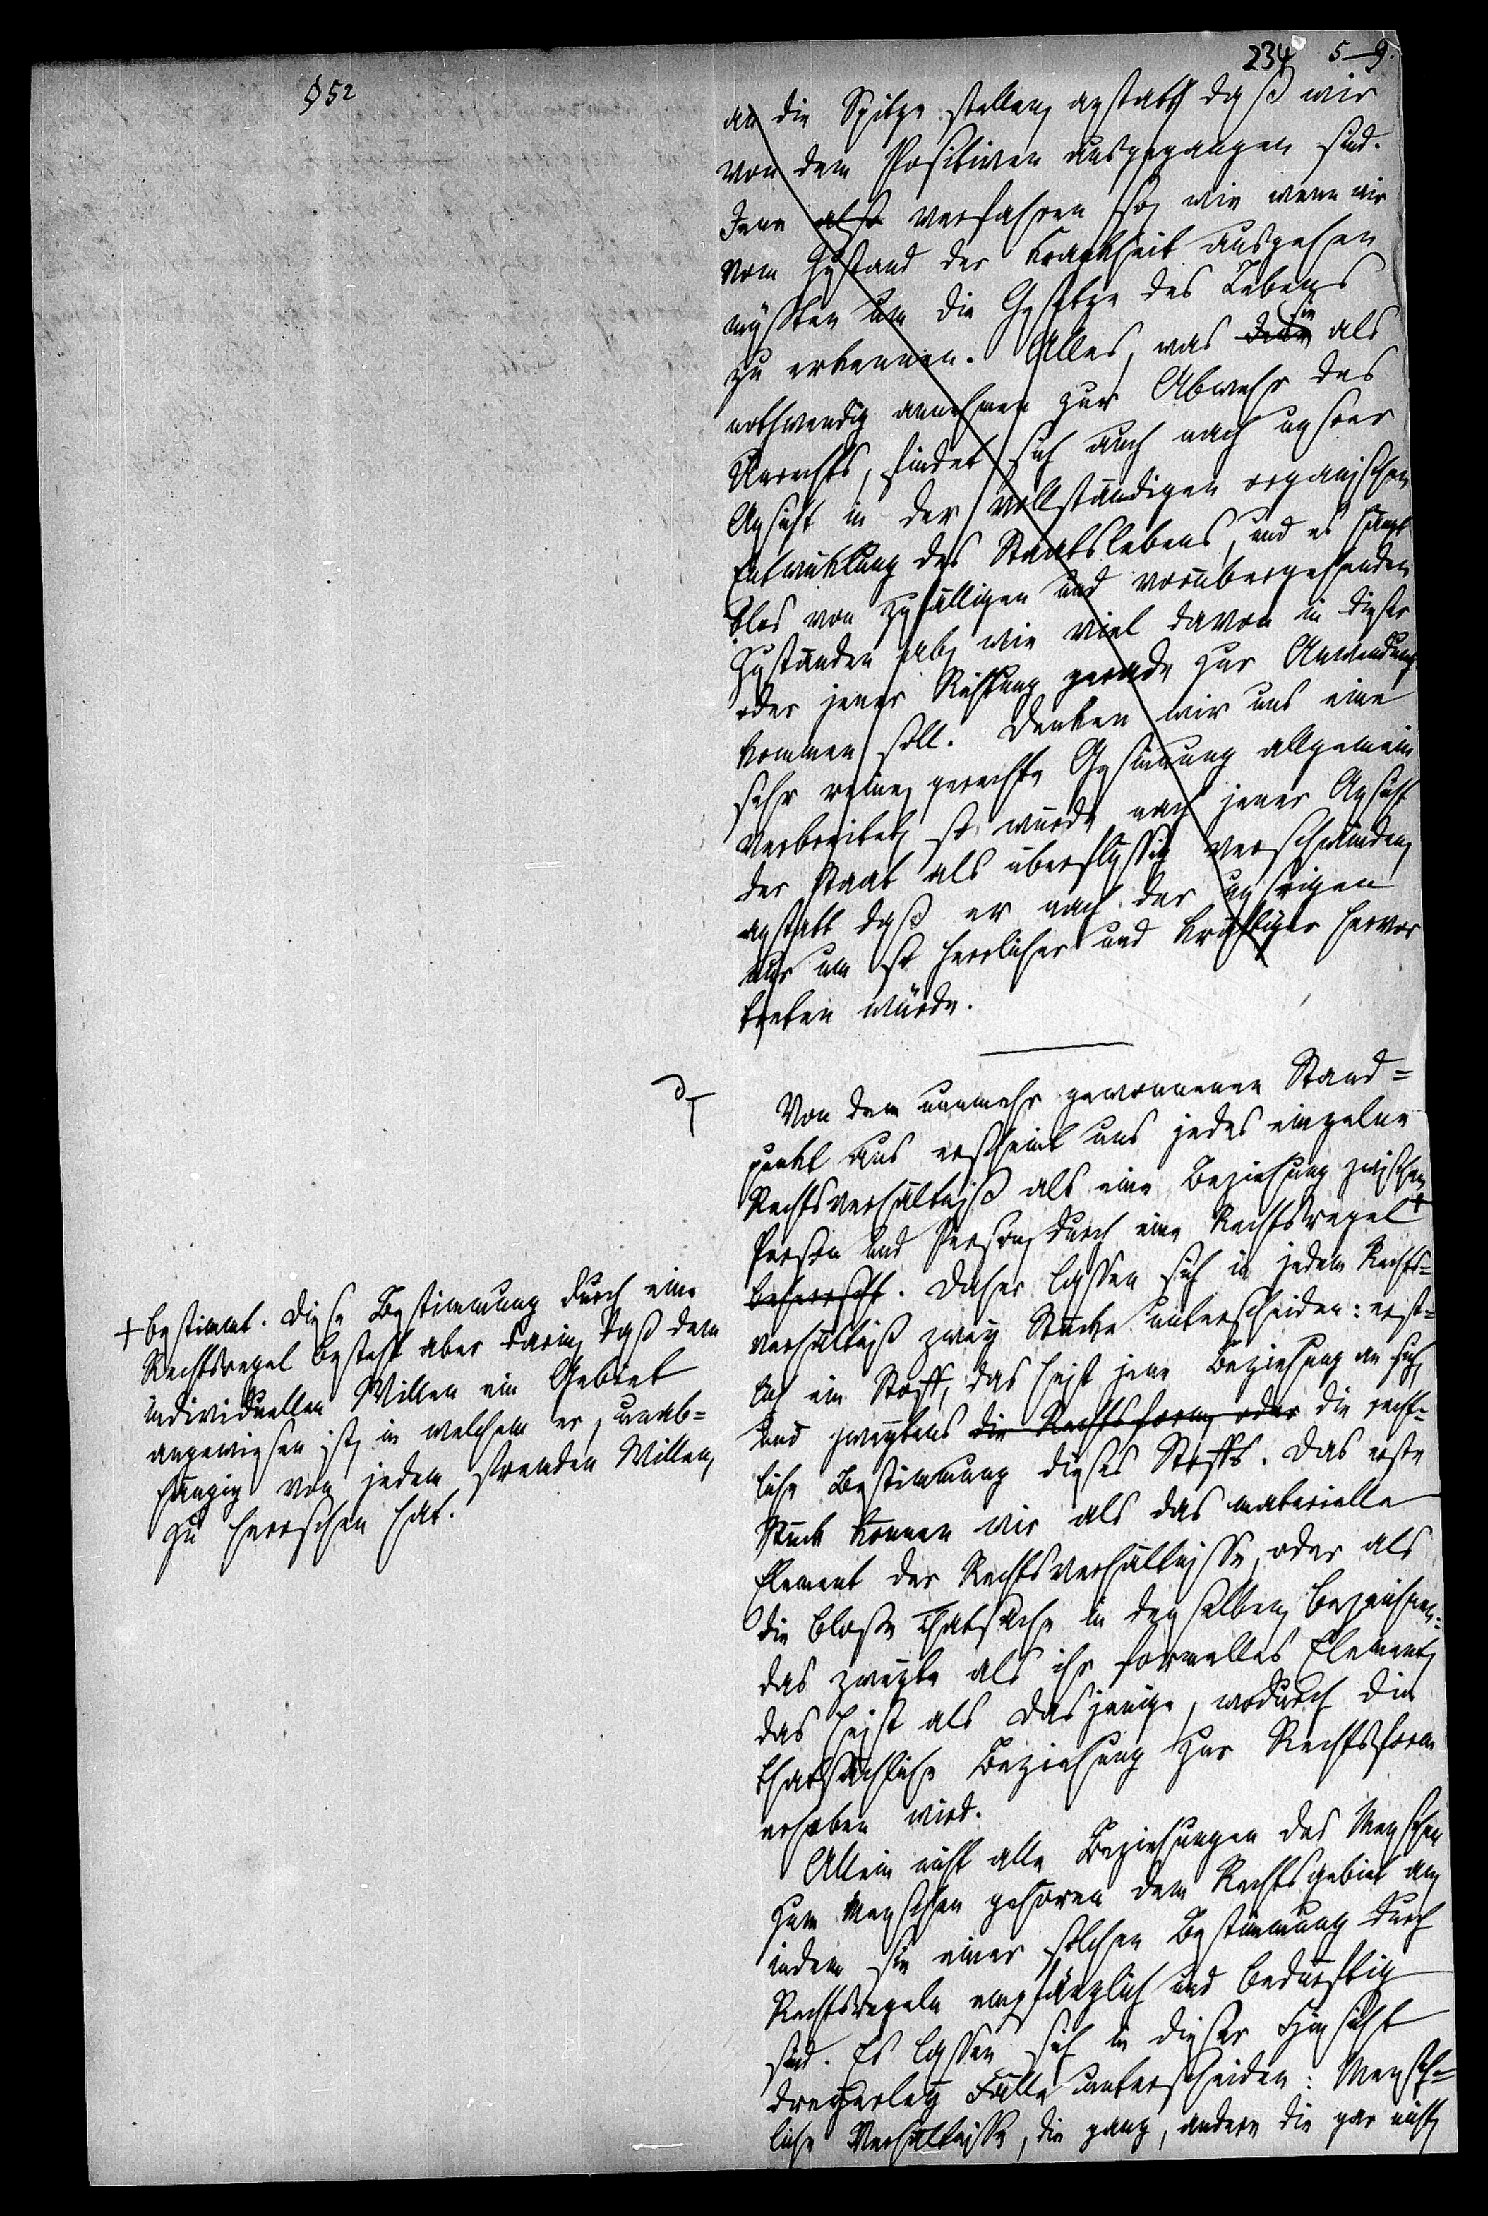 234 5-9.
§ 52
an die Spitze stellen, anstatt daß wir
von dem Positiven ausgegangen sind.
Jene also verfahren so, wie wenn wir
vom Zustand der Krankheit ausgehen
müßten um die Gesetze des Lebens
zu erkennen. Alles, was diese sie als
nothwendig annehmen zur Abwehr des
Unrechts, findet sich auch nach unsrer
Ansicht in der vollständigen organischen
Entwicklung des Staatslebens, und es hängt
blos von zufälligen und vorübergehenden
Zuständen ab, wie viel davon in dieser
oder jener Richtung gerade zur Anwendung
kommen soll. Denken wir uns eine
sehr reine, gerechte Gesinnung allgemein
verbreitet, so würde nach jener Ansicht
der Staat als überflüssig verschwinden,
anstatt daß er nach der unsrigen
nur um so herrlicher und kräftiger hervor
treten würde.
Von dem nunmehr gewonnenen Stand=
punkt aus erscheint uns jedes einzelne
Rechtsverhältniß als eine Beziehung zwischen
Person und Person, durch eine Rechtsregel +
beherrscht. Daher lassen sich in jedem Rechts=
verhältniß zwey Stücke unterscheiden: erst=
lich ein Stoff, das heißt jene Beziehung an sich,
und zweytens die Rechtsform, oder die recht=
liche Bestimmung dieses Stoffs. Das erste
Stück können wir als das materielle
Element der Rechtsverhältnisse, oder als
die bloße Thatsache in denselben, bezeichnen:
das zweyte als ihr formelles Element,
das heißt als dasjenige, wodurch die
thatsächliche Beziehung zur Rechtsform
erhoben wird.
Allein nicht alle Beziehungen des Menschen
zum Menschen gehören dem Rechtsgebiet an,
indem sie einer solchen Bestimmung durch
Rechtsregeln empfänglich und bedürftig
sind. Es lassen sich in dieser Hinsicht
dreyerley Fälle unterscheiden: Mensch=
liche Verhältnisse, die ganz, andere die gar nicht,
+ bestimmt. Diese Bestimmung durch eine
Rechtsregel besteht aber darin, daß dem
individuellen Willen ein Gebiet
angewiesen ist, in welchem er, unab=
hängig von jedem fremden Willen,
zu herrschen hat.